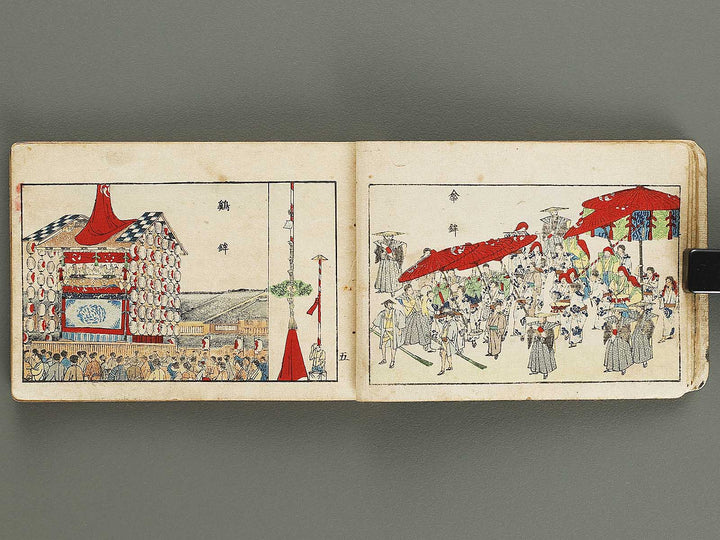 傘鉾
五
鷄鉾